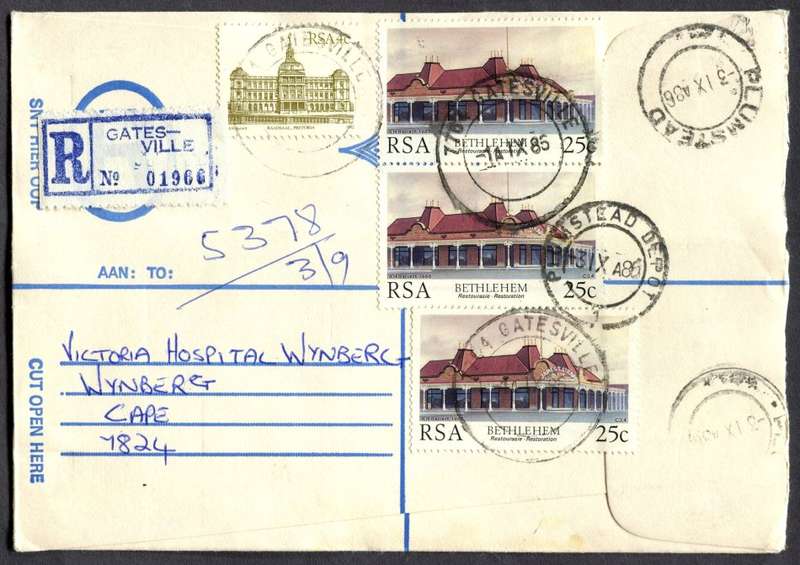 RSA 4c
RAADSAAL, PRETORIA
GATESVILLE
R
GATES-
VILLE
No 01966
SNY HIER OOP
5378
3/9
AAN: TO:
RSA BETHLEHEM 25c
Restourasie · Restoration
7764 GATESVILLE
-1 IX 85
RSA BETHLEHEM 25c
Restourasie · Restoration
RSA BETHLEHEM 25c
Restourasie · Restoration
GATESVILLE
-3 IX A86
PLUMSTEAD
PLUMSTEAD DEPOT
-3 IX A86
1
-3 IX A86
VICTORIA HOSPITAL WYNBERG
WYNBERG
CAPE
7824
CUT OPEN HERE